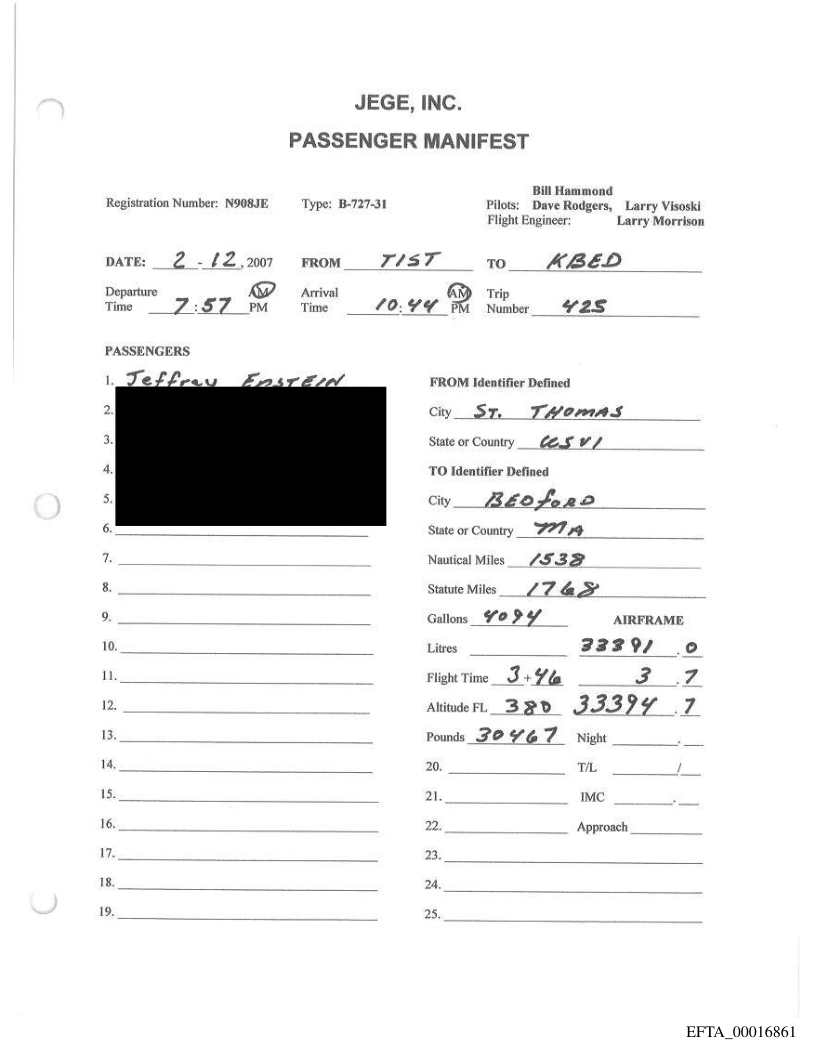 JEGE, INC.
PASSENGER MANIFEST
Bill Hammond
Registration Number: N908JE Type: B-727-31 Pilots: Dave Rodgers, Larry Visoski
Flight Engineer: Larry Morrison
DATE: 2 - 12, 2007 FROM TIST TO KBED
Departure Time 7:57 AM PM Arrival Time 10:44 AM PM Trip Number 425
PASSENGERS
1. Jeffrey EPSTEIN
2.
3.
4.
5.
6.
7.
8.
9.
10.
11.
12.
13.
14.
15.
16.
17.
18.
19.
FROM Identifier Defined
City ST. THOMAS
State or Country USVI
TO Identifier Defined
City BEDFORD
State or Country MA
Nautical Miles 1538
Statute Miles 1768
Gallons 4094 AIRFRAME
Litres 33391.0
Flight Time 3+46 3.7
Altitude FL 380 33394.7
Pounds 30467 Night .
20. T/L /
21. IMC .
22. Approach
23.
24.
25.
EFTA_00016861